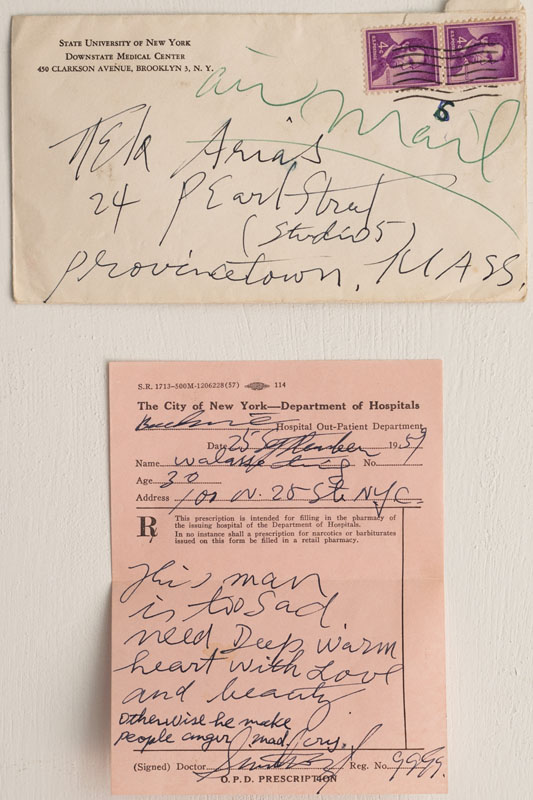 STATE UNIVERSITY OF NEW YORK
DOWNSTATE MEDICAL CENTER
450 CLARKSON AVENUE, BROOKLYN 3, N. Y.
4¢ 4¢
air mail
6
Arias
24 Pearl Street
(Studio 5)
provincetown, MASS.
S.R. 1713-500M-1206228(57) 114
The City of New York—Department of Hospitals
Hospital Out-Patient Department
Date 25 September 1959
Name walasse ting No.
Age 30
Address 100 W. 25 St. NYC.
R
This prescription is intended for filling in the pharmacy of
the issuing hospital of the Department of Hospitals.
In no instance shall a prescription for narcotics or barbiturates
issued on this form be filled in a retail pharmacy.
This man
is too Sad
need Deep warm
heart with Love
and beauty
otherwise he make
people anger, mad, cry.
(Signed) Doctor Reg. No. 9999.
O.P.D. PRESCRIPTION